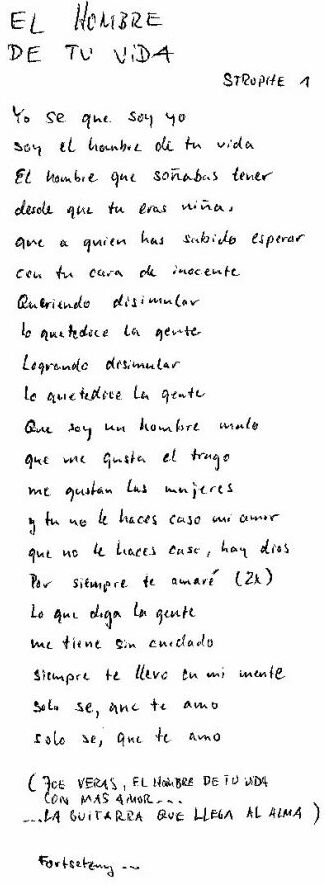 EL HOMBRE
DE TU VIDA
STROPHE 1
Yo se que soy yo
soy el hombre de tu vida
El hombre que soñabas tener
desde que tu eras niña,
que a quien has sabido esperar
con tu cara de inocente
Queriendo disimular
lo quetedice la gente
Logrando disimular
lo quetedice la gente
Que soy un hombre malo
que me gusta el trago
me gustan las mujeres
y tu no le haces caso mi amor
que no le haces caso, hay dios
Por siempre te amaré (2x)
Lo que diga la gente
me tiene sin cuidado
siempre te llevo en mi mente
solo se, que te amo
solo se, que te amo
(JOE VERAS, EL HOMBRE DE TU VIDA
CON MAS AMOR...
...LA GUITARRA QUE LLEGA AL ALMA)
Fortsetzung ...